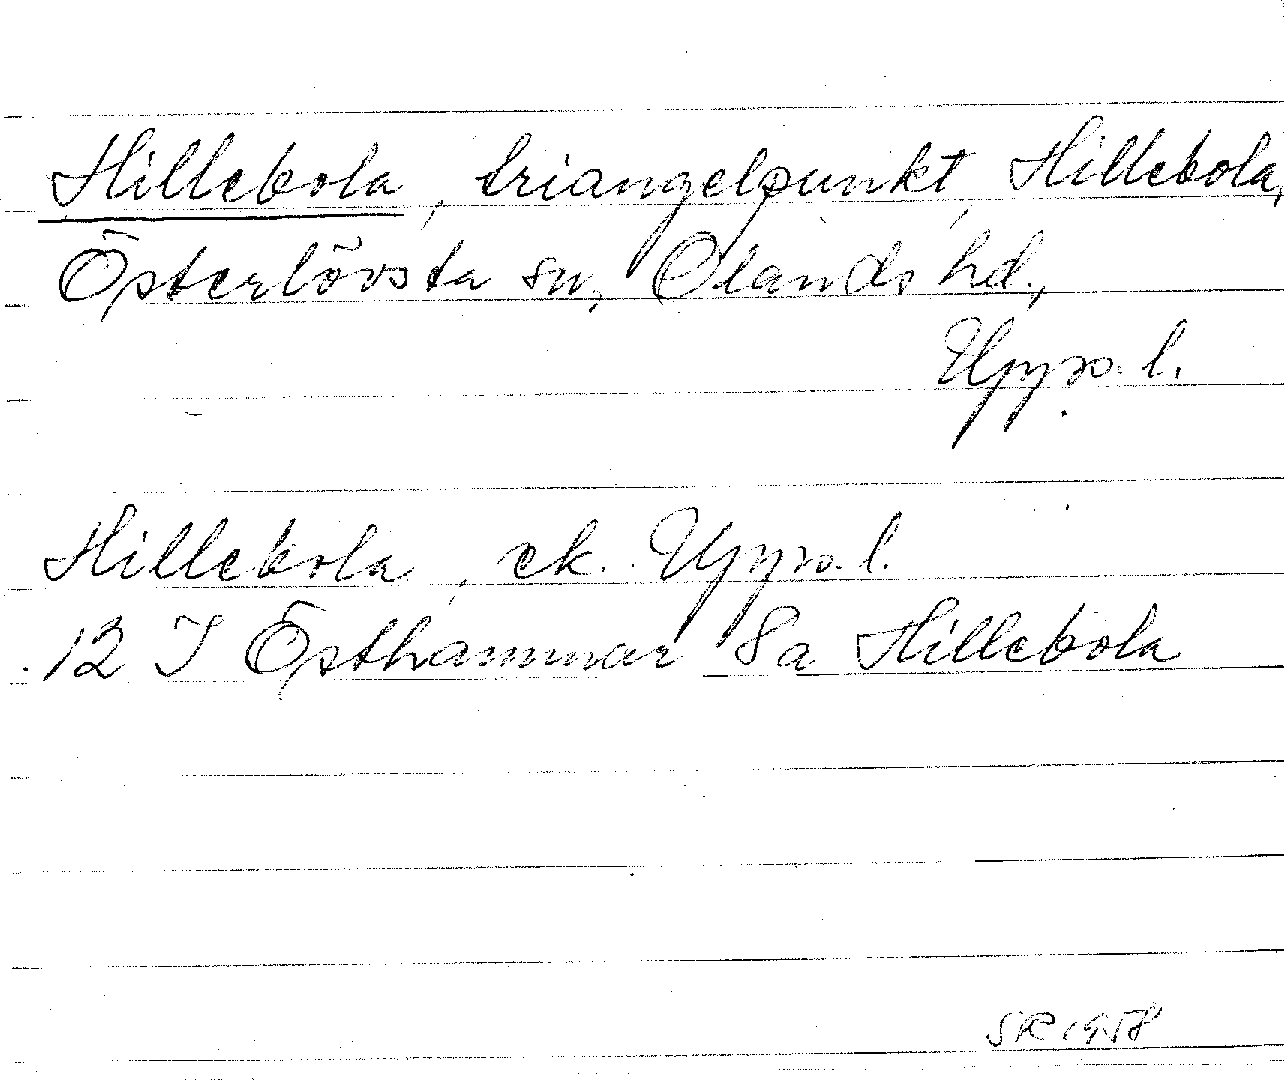 Hillebola, triangelpunkt, Hillebola,
Österlövsta sn, Olands hd.,
Upps. l.
Hillebola, ek. Upps. l.
12 I Östhammar 8a Hillebola
SR 1958